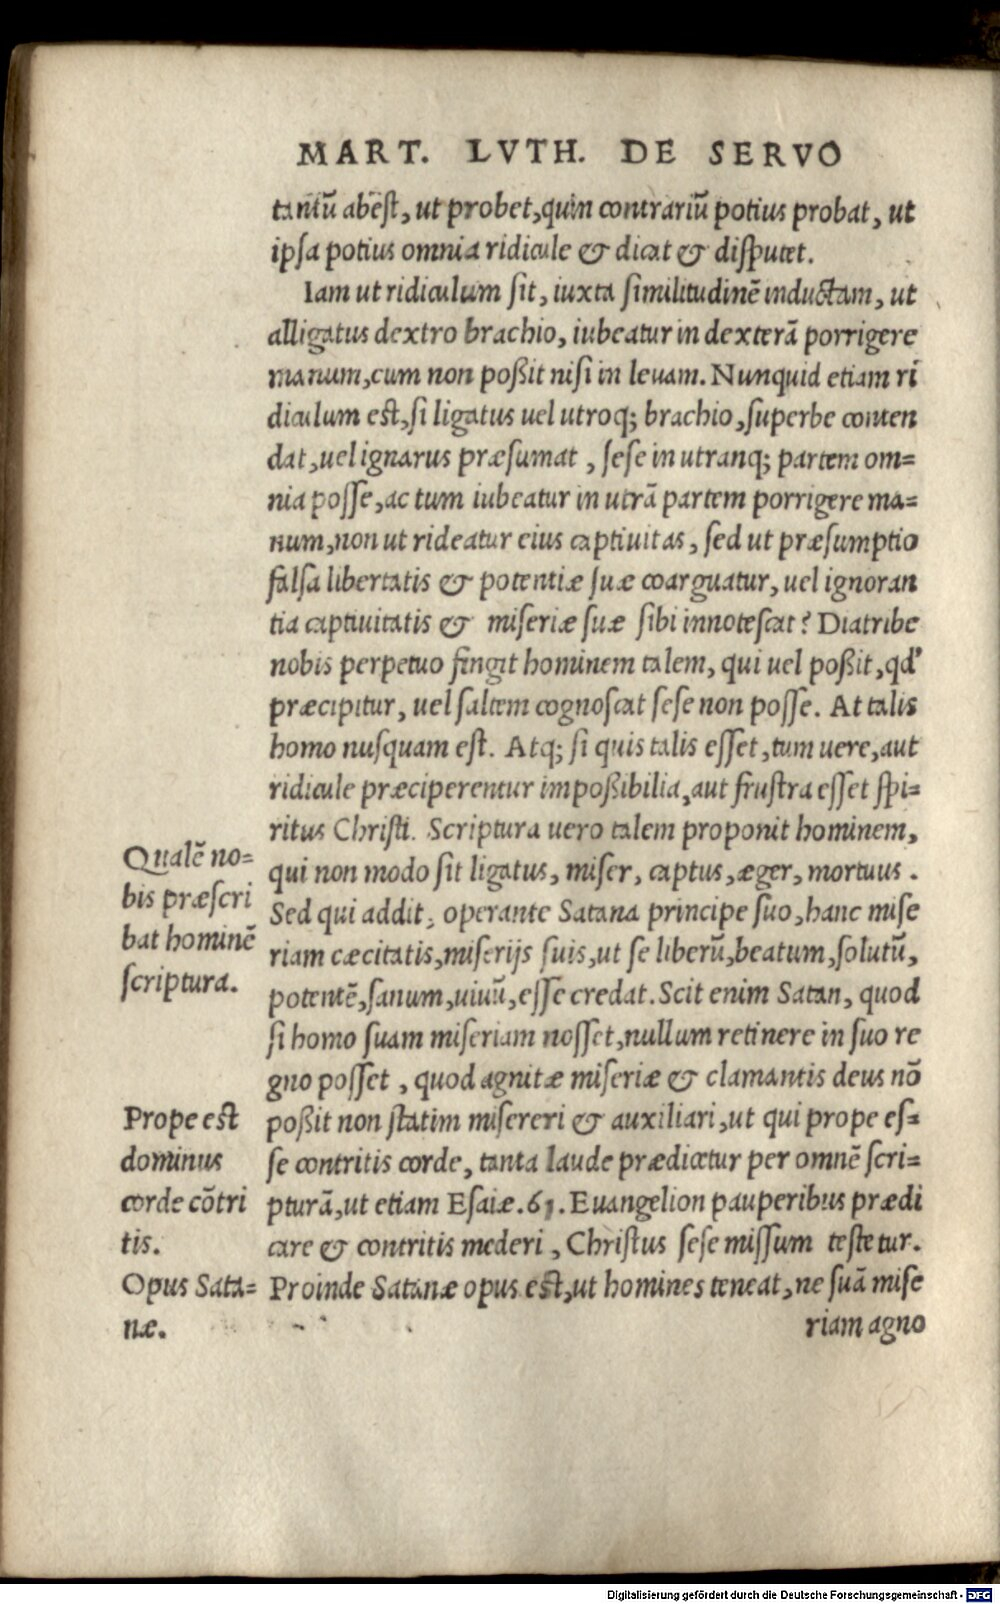 MART. LVTH. DE SERVO
tantũ abest, ut probet, quin contrariũ potius probat, ut
ipsa potius omnia ridicule & dicat & disputet.
Iam ut ridiculum sit, iuxta similitudinẽ inductam, ut
alligatus dextro brachio, iubeatur in dexterã porrigere
manum, cum non poßit nisi in leuam. Nunquid etiam ri
diculum est, si ligatus uel utroq; brachio, superbe conten
dat, uel ignarus præsumat, sese in utranq; partem om=
nia posse, ac tum iubeatur in utrã partem porrigere ma=
num, non ut rideatur eius captiuitas, sed ut præsumptio
falsa libertatis & potentiæ suæ coarguatur, uel ignoran
tia captiuitatis & miseriæ suæ sibi innotescat? Diatribe
nobis perpetuo fingit hominem talem, qui uel poßit, qd'
præcipitur, uel saltem cognoscat sese non posse. At talis
homo nusquam est. Atq; si quis talis esset, tum uere, aut
ridicule præciperentur impoßibilia, aut frustra esset spi=
ritus Christi. Scriptura uero talem proponit hominem,
qui non modo sit ligatus, miser, captus, æger, mortuus.
Sed qui addit, operante Satana principe suo, hanc mise
riam cæcitatis, miserijs suis, ut se liberũ, beatum, solutũ,
potentẽ, sanum, uiuũ, esse credat. Scit enim Satan, quod
si homo suam miseriam nosset, nullum retinere in suo re
gno posset, quod agnitæ miseriæ & clamantis deus nõ
poßit non statim misereri & auxiliari, ut qui prope es=
se contritis corde, tanta laude prædicetur per omnẽ scri=
pturã, ut etiam Esaiæ. 61. Euangelion pauperibus prædi
care & contritis mederi, Christus sese missum testetur.
Proinde Satanæ opus est, ut homines teneat, ne suã mise
riam agno
Qualẽ no=
bis præscri
bat hominẽ
scriptura.
Prope est
dominus
corde cõtri
tis.
Opus Sata=
næ.
Digitalisierung gefördert durch die Deutsche Forschungsgemeinschaft - DFG